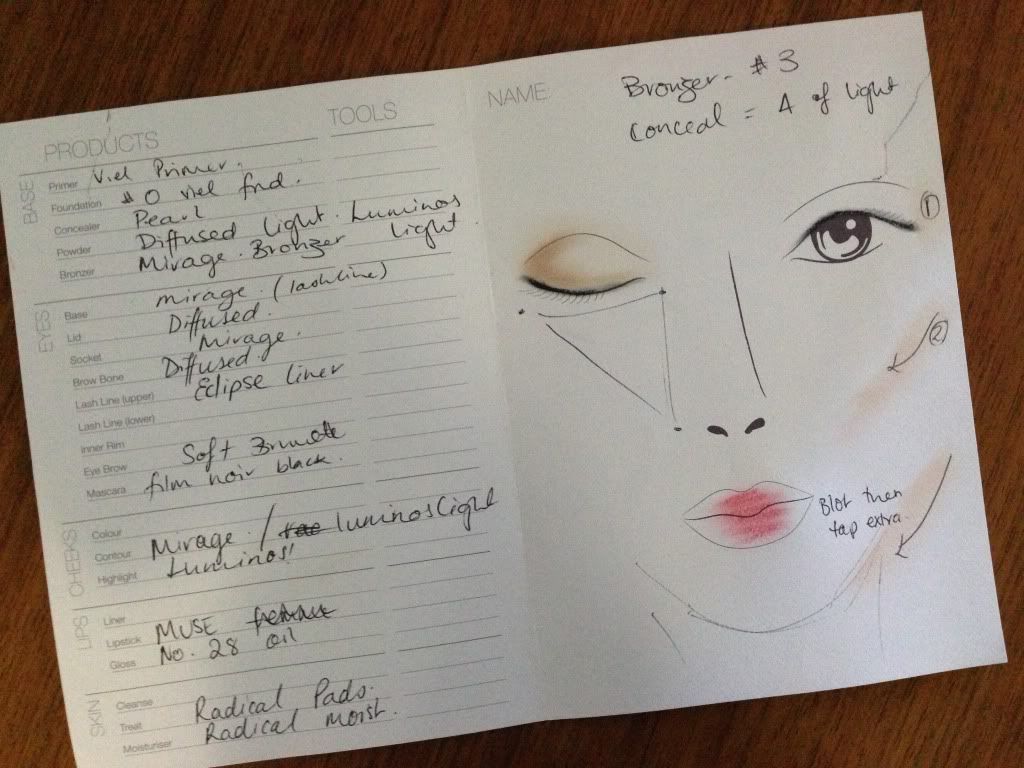 PRODUCTS
TOOLS
BASE
Primer Viel Primer.
Foundation # 0 viel fnd.
Concealer Pearl
Powder Diffused Light. Luminos
Bronzer Mirage. Bronzer light
EYES
Base mirage. (lashline)
Lid Diffused.
Socket Mirage.
Brow Bone Diffused.
Lash Line (upper) Eclipse liner
Lash Line (lower)
Inner Rim
Eye Brow Soft
Mascara film noir black.
CHEEKS
Colour
Contour Mirage. / luminos light
Highlight Luminos!
LIPS
Liner
Lipstick MUSE
Gloss No. 28 oil
SKIN
Cleanse
Treat Radical Pads.
Moisturiser Radical moist.
NAME
Bronzer - # 3
Conceal = 4 of light
1
2
Blot then
tap extra.